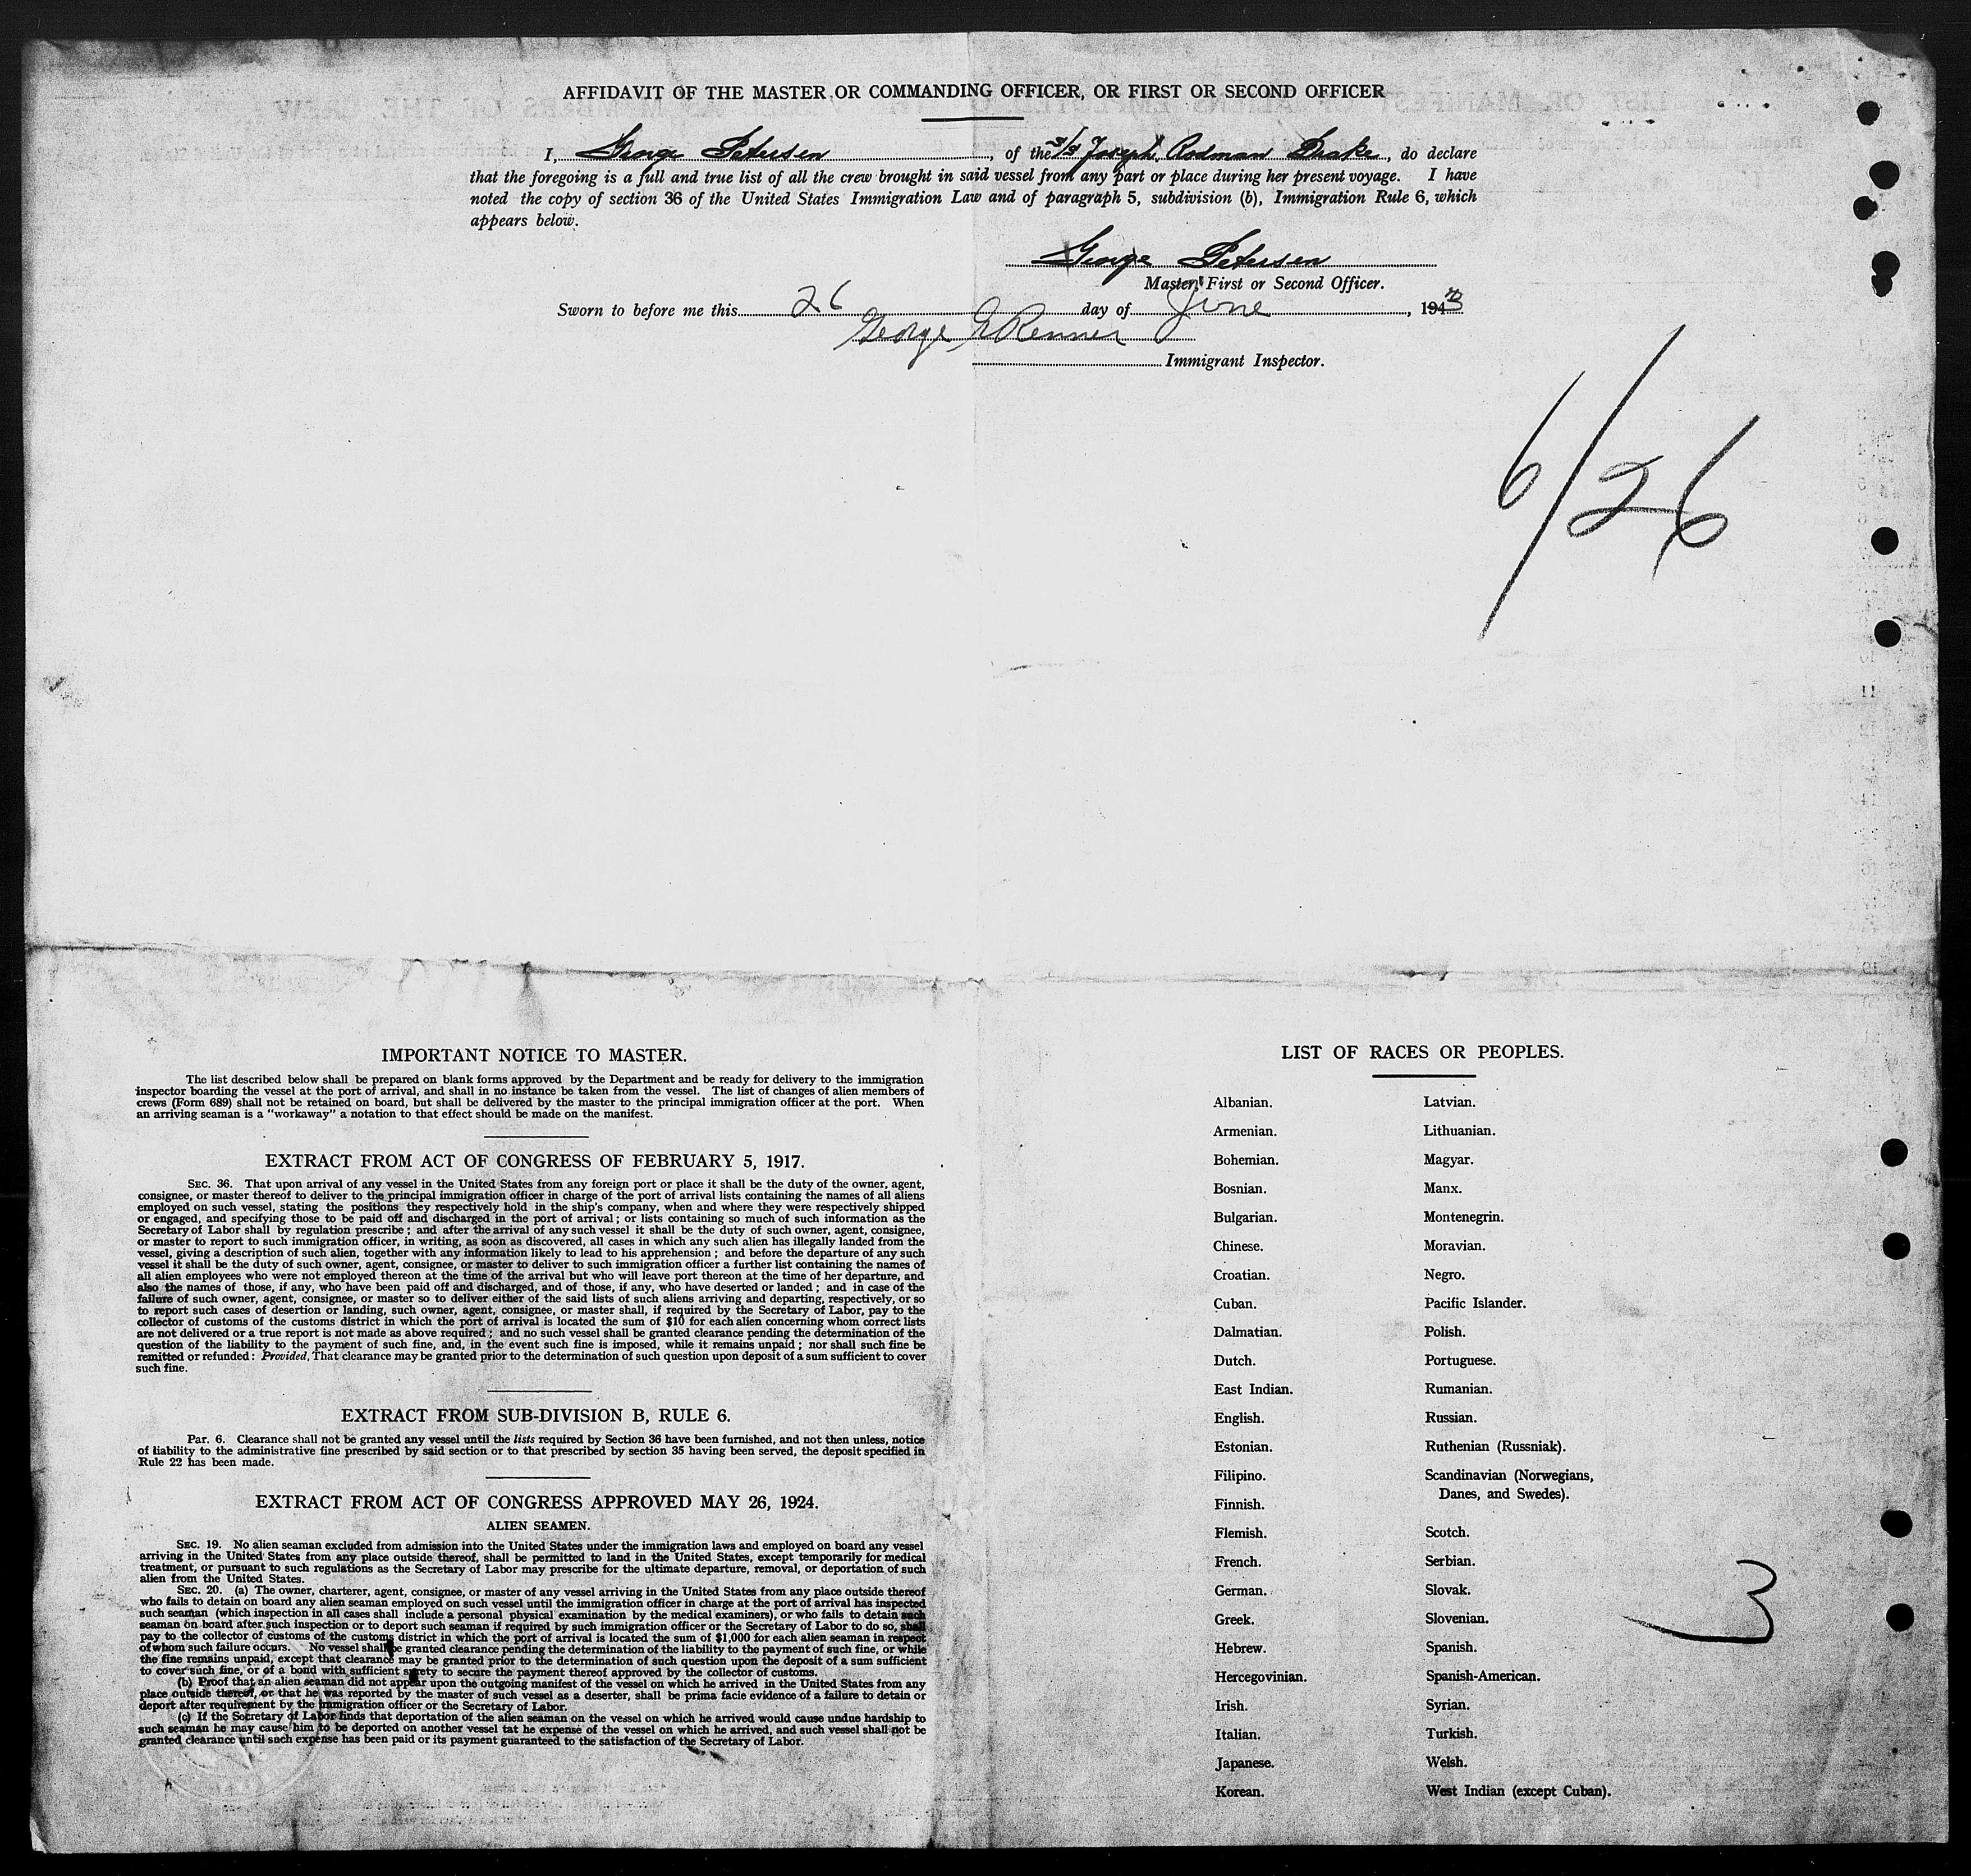 AFFIDAVIT OF THE MASTER OR COMMANDING OFFICER, OR FIRST OR SECOND OFFICER
I, George Petersen, of the S/S Joseph Rodman Drake, do declare
that the foregoing is a full and true list of all the crew brought in said vessel from any part or place during her present voyage. I have
noted the copy of section 36 of the United States Immigration Law and of paragraph 5, subdivision (b), Immigration Rule 6, which
appears below.
George Petersen
Master, First or Second Officer.
Sworn to before me this 26 day of June, 1943
George G Renner
Immigrant Inspector.
6/26
11
IMPORTANT NOTICE TO MASTER.
The list described below shall be prepared on blank forms approved by the Department and be ready for delivery to the immigration
inspector boarding the vessel at the port of arrival, and shall in no instance be taken from the vessel. The list of changes of alien members of
crews (Form 689) shall not be retained on board, but shall be delivered by the master to the principal immigration officer at the port. When
an arriving seaman is a "workaway" a notation to that effect should be made on the manifest.
EXTRACT FROM ACT OF CONGRESS OF FEBRUARY 5, 1917.
SEC. 36. That upon arrival of any vessel in the United States from any foreign port or place it shall be the duty of the owner, agent,
consignee, or master thereof to deliver to the principal immigration officer in charge of the port of arrival lists containing the names of all aliens
employed on such vessel, stating the positions they respectively hold in the ship's company, when and where they were respectively shipped
or engaged, and specifying those to be paid off and discharged in the port of arrival; or lists containing so much of such information as the
Secretary of Labor shall by regulation prescribe; and after the arrival of any such vessel it shall be the duty of such owner, agent, consignee,
or master to report to such immigration officer, in writing, as soon as discovered, all cases in which any such alien has illegally landed from the
vessel, giving a description of such alien, together with any information likely to lead to his apprehension; and before the departure of any such
vessel it shall be the duty of such owner, agent, consignee, or master to deliver to such immigration officer a further list containing the names of
all alien employees who were not employed thereon at the time of the arrival but who will leave port thereon at the time of her departure, and
also the names of those, if any, who have been paid off and discharged, and of those, if any, who have deserted or landed; and in case of the
failure of such owner, agent, consignee, or master so to deliver either of the said lists of such aliens arriving and departing, respectively, or so
to report such cases of desertion or landing, such owner, agent, consignee, or master shall, if required by the Secretary of Labor, pay to the
collector of customs of the customs district in which the port of arrival is located the sum of $10 for each alien concerning whom correct lists
are not delivered or a true report is not made as above required; and no such vessel shall be granted clearance pending the determination of the
question of the liability to the payment of such fine, and, in the event such fine is imposed, while it remains unpaid; nor shall such fine be
remitted or refunded: Provided, That clearance may be granted prior to the determination of such question upon deposit of a sum sufficient to cover
such fine.
EXTRACT FROM SUB-DIVISION B, RULE 6.
Par. 6. Clearance shall not be granted any vessel until the lists required by Section 36 have been furnished, and not then unless, notice
of liability to the administrative fine prescribed by said section or to that prescribed by section 35 having been served, the deposit specified in
Rule 22 has been made.
EXTRACT FROM ACT OF CONGRESS APPROVED MAY 26, 1924.
ALIEN SEAMEN.
SEC. 19. No alien seaman excluded from admission into the United States under the immigration laws and employed on board any vessel
arriving in the United States from any place outside thereof, shall be permitted to land in the United States, except temporarily for medical
treatment, or pursuant to such regulations as the Secretary of Labor may prescribe for the ultimate departure, removal, or deportation of such
alien from the United States.
SEC. 20. (a) The owner, charterer, agent, consignee, or master of any vessel arriving in the United States from any place outside thereof
who fails to detain on board any alien seaman employed on such vessel until the immigration officer in charge at the port of arrival has inspected
such seaman (which inspection in all cases shall include a personal physical examination by the medical examiners), or who fails to detain such
seaman on board after such inspection or to deport such seaman if required by such immigration officer or the Secretary of Labor to do so, shall
pay to the collector of customs of the customs district in which the port of arrival is located the sum of $1,000 for each alien seaman in respect
of whom such failure occurs. No vessel shall be granted clearance pending the determination of the liability to the payment of such fine, or while
the fine remains unpaid, except that clearance may be granted prior to the determination of such question upon the deposit of a sum sufficient
to cover such fine, or of a bond with sufficient surety to secure the payment thereof approved by the collector of customs.
(b) Proof that an alien seaman did not appear upon the outgoing manifest of the vessel on which he arrived in the United States from any
place outside thereof, or that he was reported by the master of such vessel as a deserter, shall be prima facie evidence of a failure to detain or
deport after requirement by the immigration officer or the Secretary of Labor.
(c) If the Secretary of Labor finds that deportation of the alien seaman on the vessel on which he arrived would cause undue hardship to
such seaman he may cause him to be deported on another vessel tat he expense of the vessel on which he arrived, and such vessel shall not be
granted clearance until such expense has been paid or its payment guaranteed to the satisfaction of the Secretary of Labor.
LIST OF RACES OR PEOPLES.
Albanian.
Armenian.
Bohemian.
Bosnian.
Bulgarian.
Chinese.
Croatian.
Cuban.
Dalmatian.
Dutch.
East Indian.
English.
Estonian.
Filipino.
Finnish.
Flemish.
French.
German.
Greek.
Hebrew.
Hercegovinian.
Irish.
Italian.
Japanese.
Korean.
Latvian.
Lithuanian.
Magyar.
Manx.
Montenegrin.
Moravian.
Negro.
Pacific Islander.
Polish.
Portuguese.
Rumanian.
Russian.
Ruthenian (Russniak).
Scandinavian (Norwegians,
Danes, and Swedes).
Scotch.
Serbian.
Slovak.
Slovenian.
Spanish.
Spanish-American.
Syrian.
Turkish.
Welsh.
West Indian (except Cuban).
3